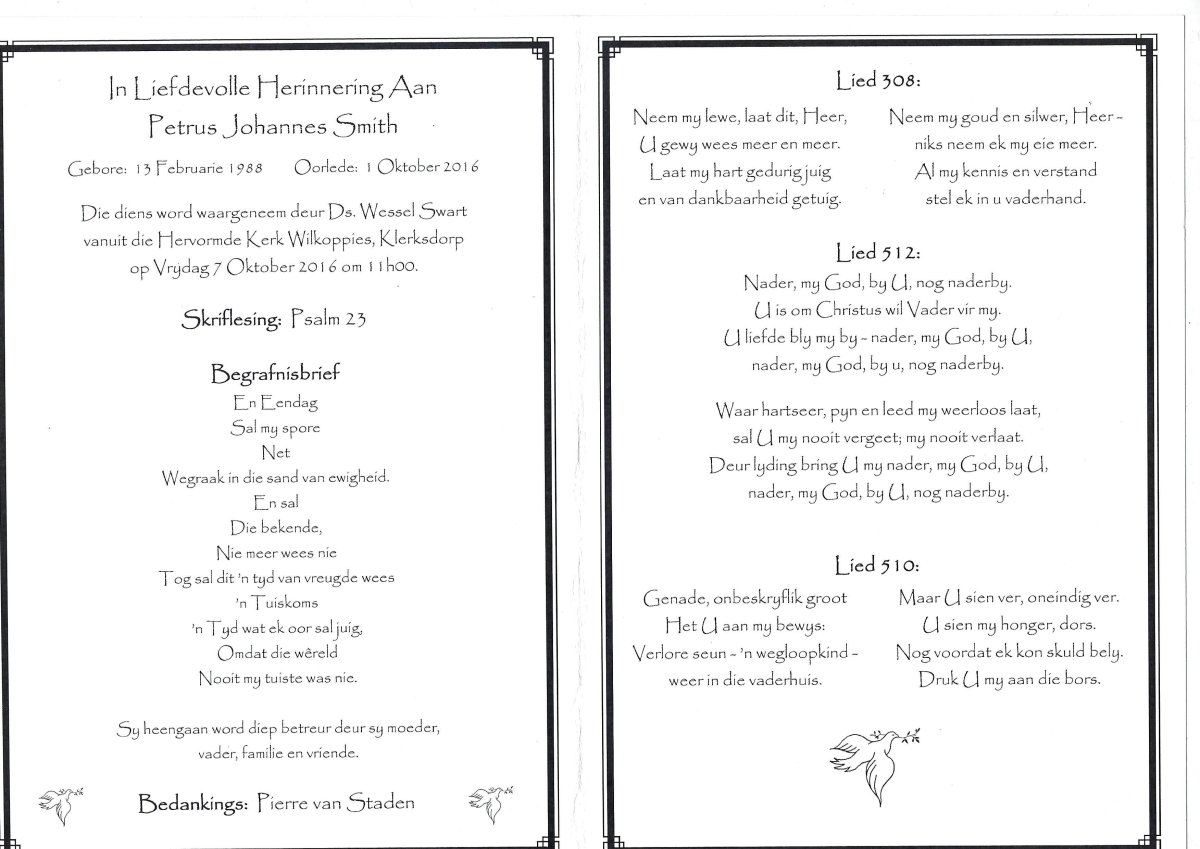 In Liefdevolle Herinnering Aan
Petrus Johannes Smith
Gebore: 13 Februarie 1988 Oorlede: 1 Oktober 2016
Die diens word waargeneem deur Ds. Wessel Swart
vanuit die Hervormde Kerk Wilkoppies, Klerksdorp
op Vrydag 7 Oktober 2016 om 11h00.
Skriflesing: Psalm 23
Begrafnisbrief
En Eendag
Sal my spore
Net
Wegraak in die sand van ewigheid.
En sal
Die bekende,
Nie meer wees nie
Tog sal dit 'n tyd van vreugde wees
'n Tuiskoms
'n Tyd wat ek oor sal juig,
Omdat die wêreld
Nooit my tuiste was nie.
Sy heengaan word diep betreur deur sy moeder,
vader, familie en vriende.
Bedankings: Pierre van Staden
Lied 308:
Neem my lewe, laat dit, Heer,
U gewy wees meer en meer.
Laat my hart gedurig juig
en van dankbaarheid getuig.
Neem my goud en silwer, Heer -
niks neem ek my eie meer.
Al my kennis en verstand
stel ek in u vaderhand.
Lied 512:
Nader, my God, by U, nog naderby.
U is om Christus wil Vader vir my.
U liefde bly my by - nader, my God, by U,
nader, my God, by u, nog naderby.
Waar hartseer, pyn en leed my weerloos laat,
sal U my nooit vergeet; my nooit verlaat.
Deur lyding bring U my nader, my God, by U,
nader, my God, by U, nog naderby.
Lied 510:
Genade, onbeskryflik groot
Het U aan my bewys:
Verlore seun - 'n wegloopkind -
weer in die vaderhuis.
Maar U sien ver, oneindig ver.
U sien my honger, dors.
Nog voordat ek kon skuld bely.
Druk U my aan die bors.